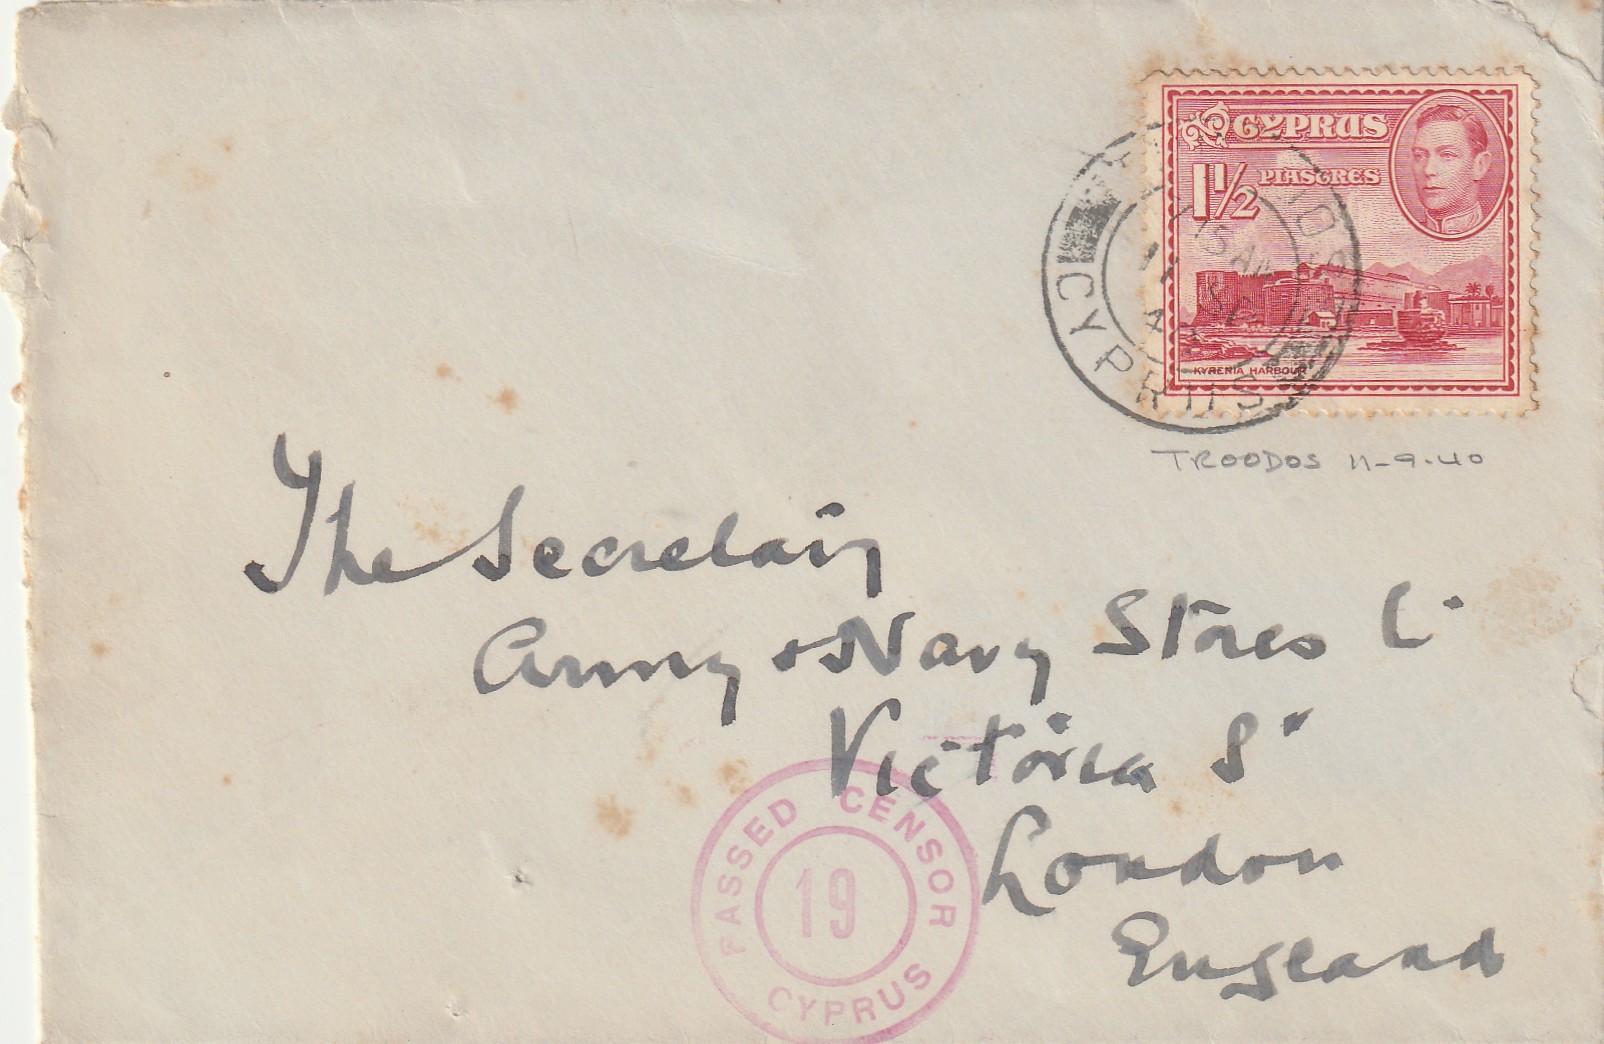 CYPRUS
1½ PIASTRES
KYRENIA HARBOUR
CYPRUS
TROODOS 11-9-40
The Secretary
Army & Navy Stores L
Victoria S
London
England
PASSED CENSOR
19
CYPRUS